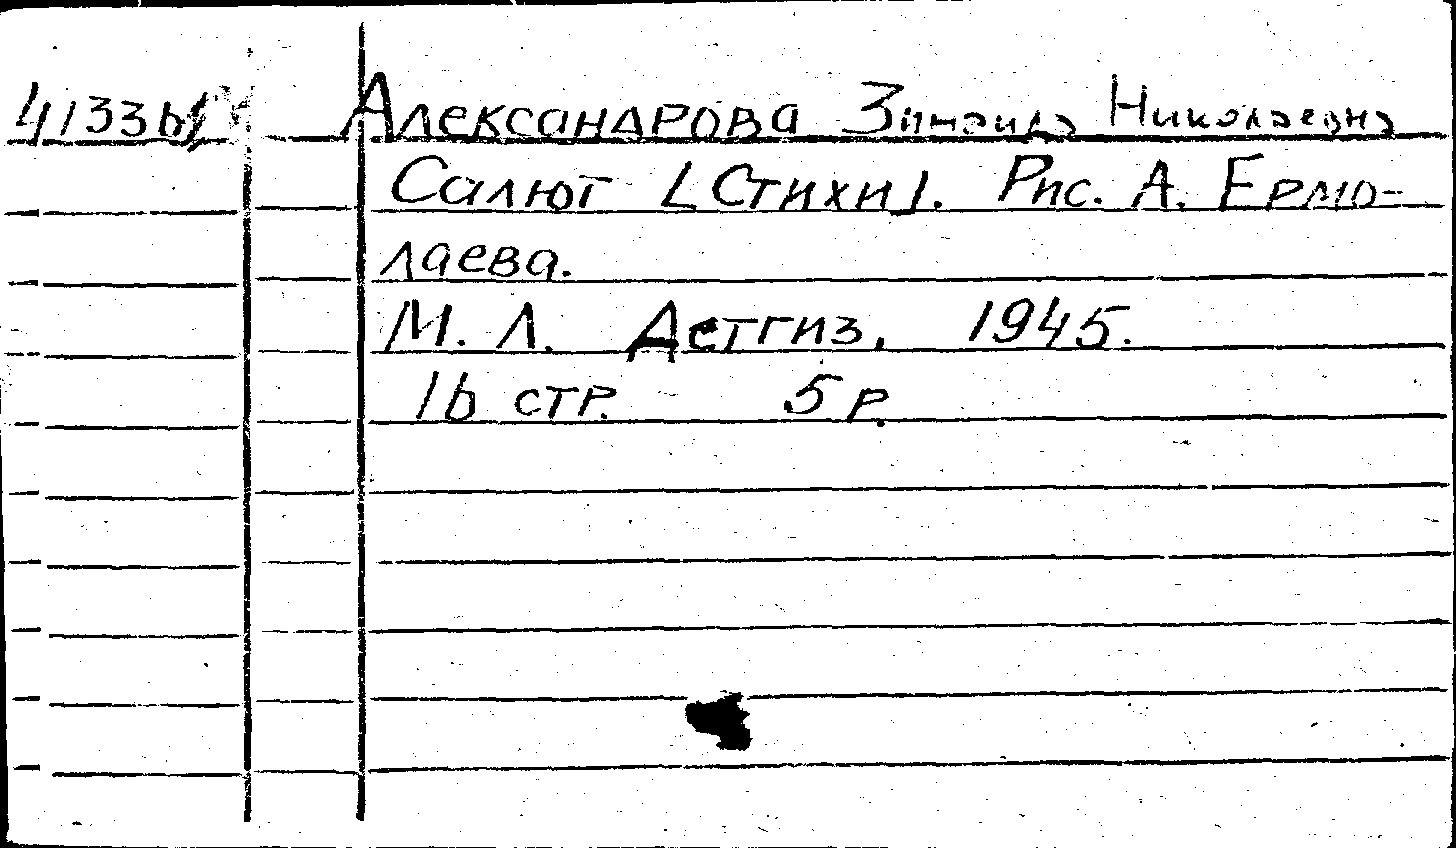 41336 Александрова Зинаида Николаевна
Салют [Стихи]. Рис. А. Ермо-
лаева.
М. Л. Детгиз, 1945.
16 стр. 5 р.